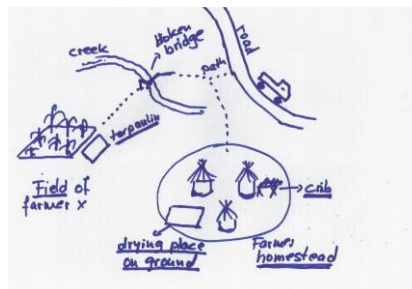 Broken
bridge
creek
road
path
tarpaulin
Field of
farmer x
crib
drying place
on ground
Farmer
homestead